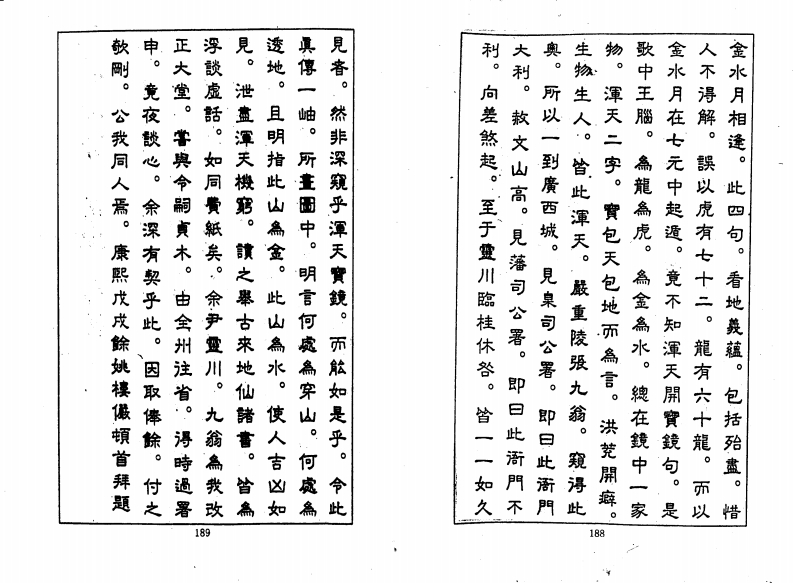 金水月相逢。此四句。看地義蘊。包括殆盡。惜
人不得解。誤以虎有七十二。龍有六十龍。而以
金水月在七元中起遁。竟不知渾天開寶鏡句。是
歌中王腦。為龍為虎。為金為水。總在鏡中一家
物。渾天二字。實包天包地而為言。洪荒開癖。
生物生人。皆此渾天。嚴重陵張九翁。窺得此
奧。所以一到廣西城。見臬司公署。即曰此衙門
大利。救文山高。見藩司公署。即曰此衙門不
利。向差煞起。至于靈川臨桂休咎。皆一一如久
188
見者。然非深窺乎渾天寶鏡。而能如是乎。今此
真傳一岫。所畫圖中。明言何處為穿山。何處為
透地。且明指此山為金。此山為水。使人吉凶如
見。泄盡渾天機竅。讀之舉古來地仙諸書。皆為
浮談虛話。如同費紙矣。余尹靈川。九翁為我改
正大堂。嘗與令嗣貞木。由全州往省。得時過署
中。竟夜談心。余深有契乎此。因取俸餘。付之
欹剛。公我同人焉。康熙戊戌餘姚樓儼頓首拜題
189